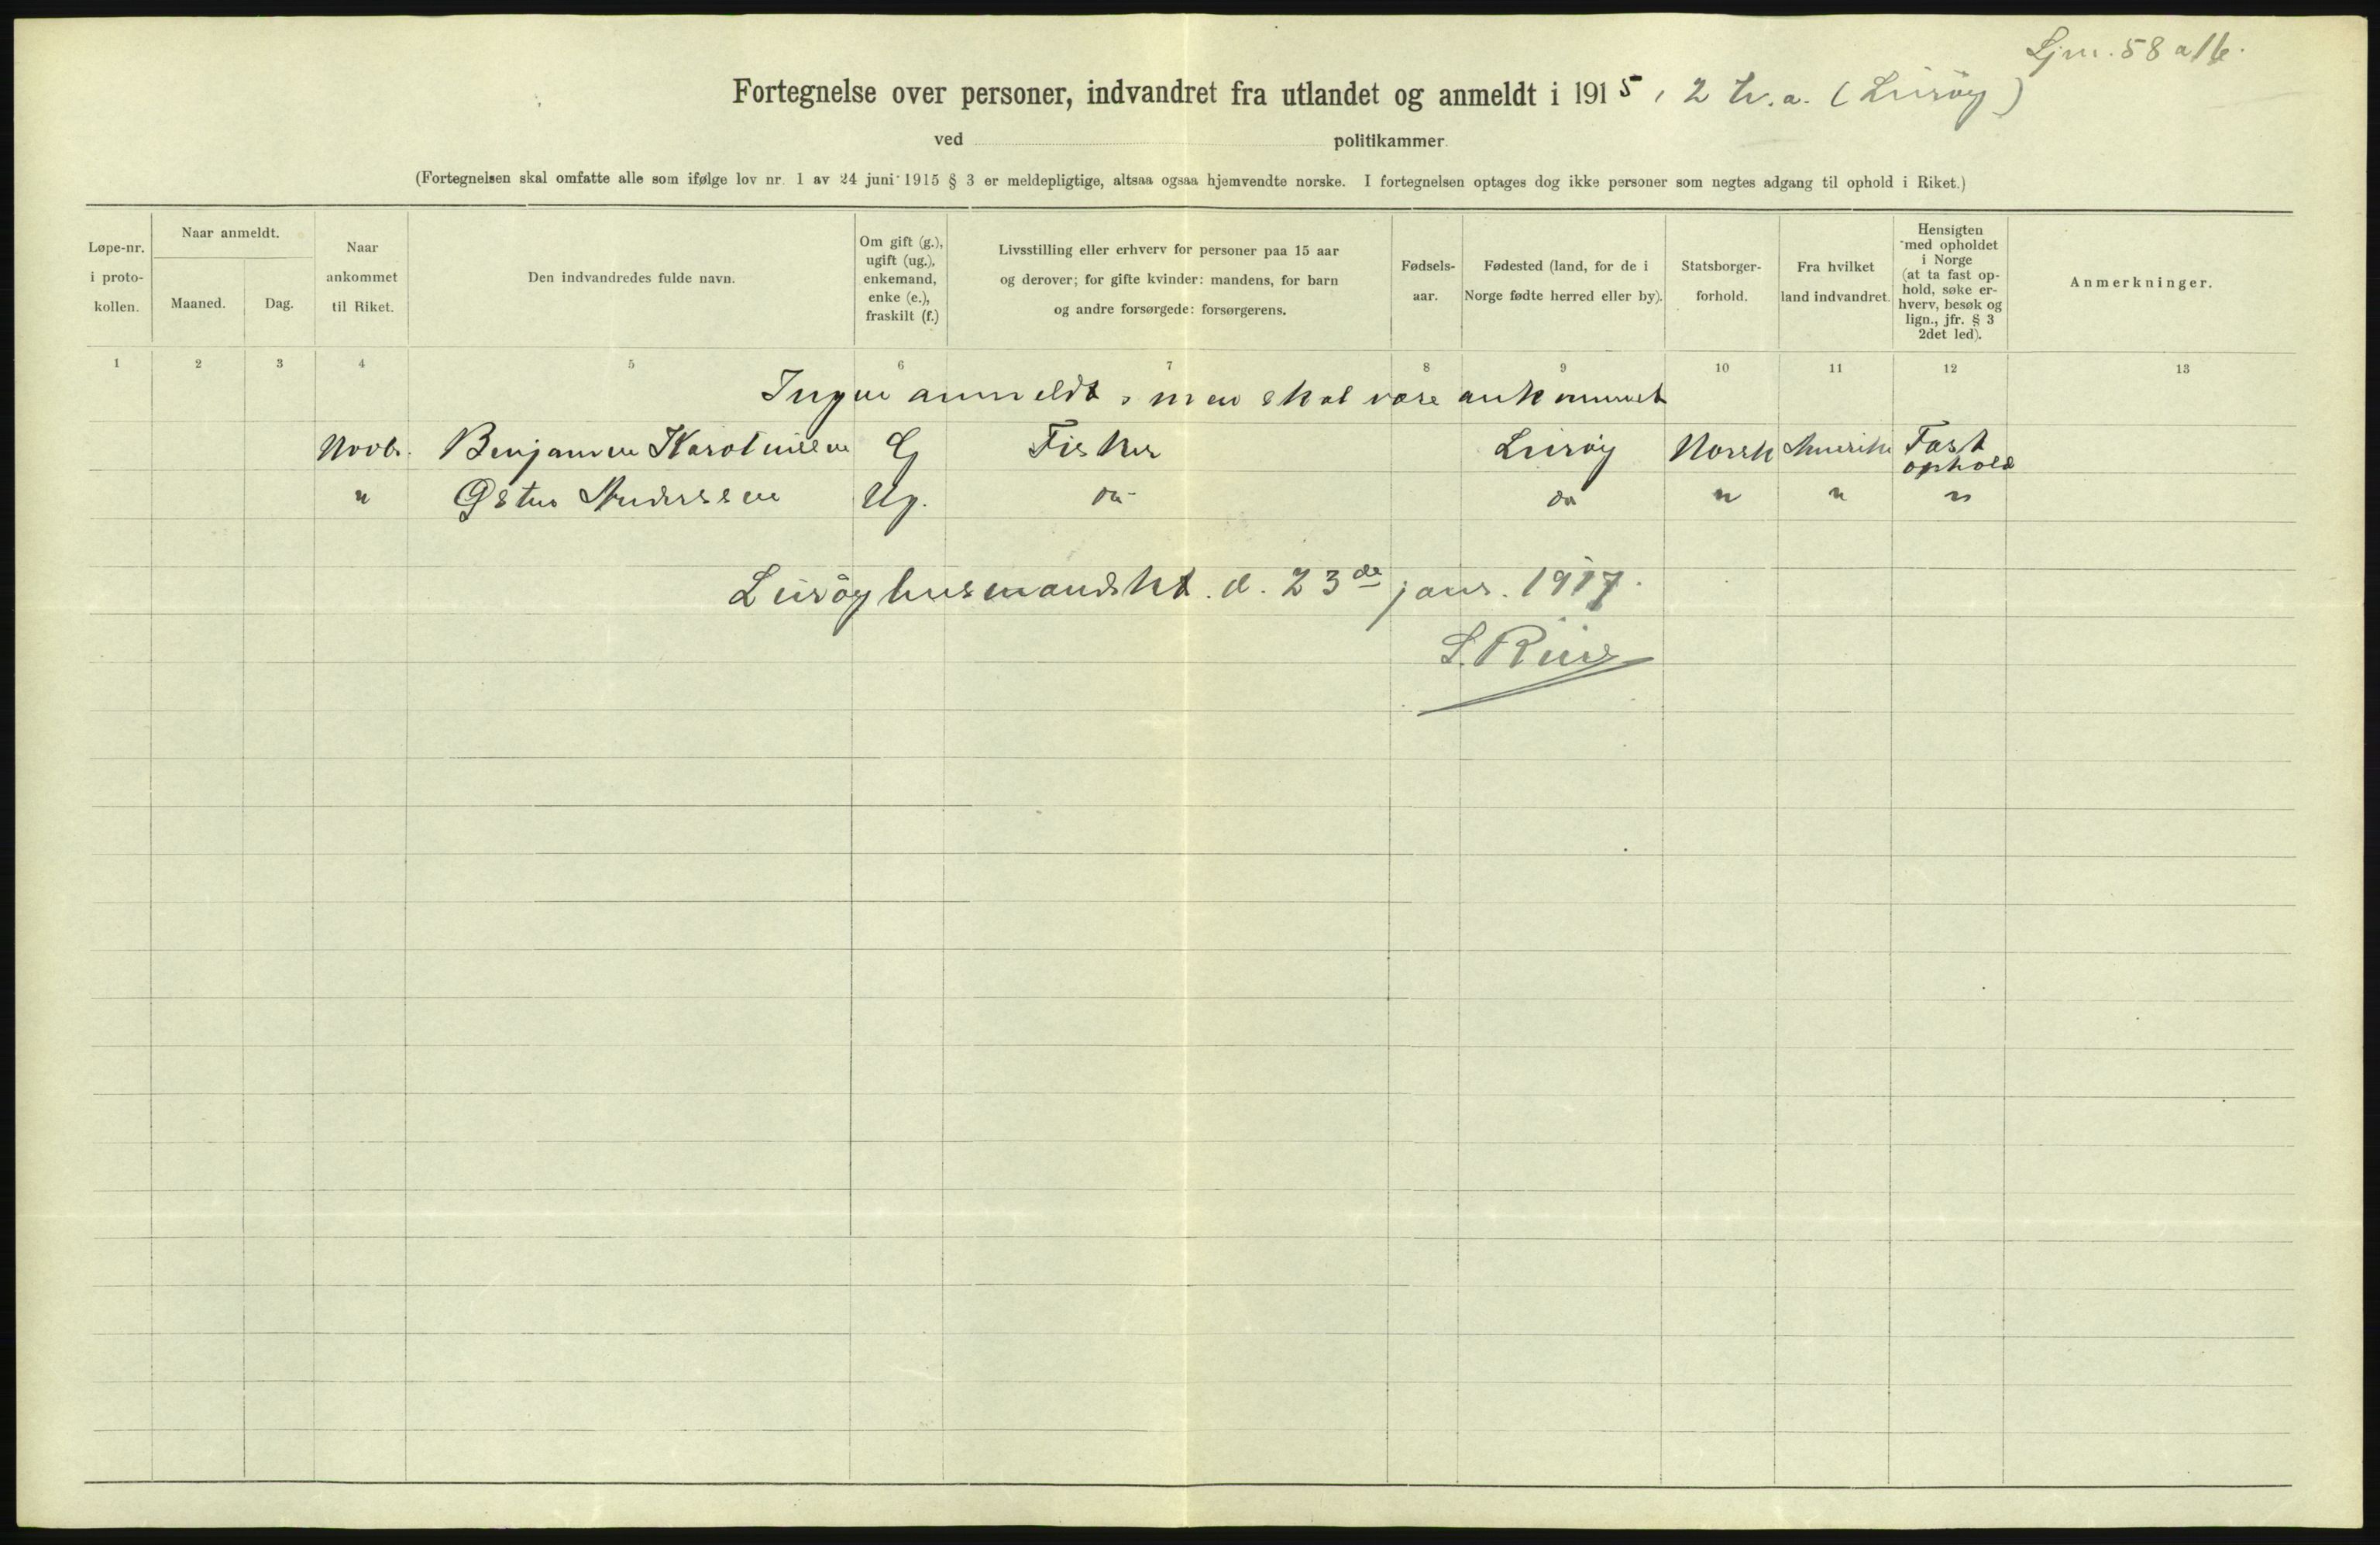 Ljnr. 58 a/16.
Fortegnelse over personer, indvandret fra utlandet og anmeldt i 1915, 2 h.a. (Lurøy)
ved politikammer.
(Fortegnelsen skal omfatte alle som ifølge lov nr. 1 av 24 juni 1915 § 3 er meldepligtige, altsaa ogsaa hjemvendte norske. I fortegnelsen optages dog ikke personer som negtes adgang til ophold i Riket.)
Løpe-nr. i proto-kollen.
Naar anmeldt.
Maaned. Dag.
Naar ankommet til Riket.
Den indvandredes fulde navn.
Om gift (g.), ugift (ug.), enkemand, enke (e.), fraskilt (f.)
Livsstilling eller erhverv for personer paa 15 aar og derover; for gifte kvinder: mandens, for barn og andre forsørgede: forsørgerens.
Fødsels-aar.
Fødested (land, for de i Norge fødte herred eller by).
Statsborger-forhold.
Fra hvilket land indvandret.
Hensigten med opholdet i Norge (at ta fast op-hold, søke er-hverv, besøk og lign., jfr. § 3 2det led).
Anmerkninger.
1 2 3 4 5 6 7 8 9 10 11 12 13
Ingen anmeldt, men skal være ankommet
Novbr. Benjamin Karolinsen G Fisker Lurøy Norsk Amerika Fast ophold
" Anderssen Ug. do do " " "
Lurøy lensmandskt. d. 23de janr. 1917.